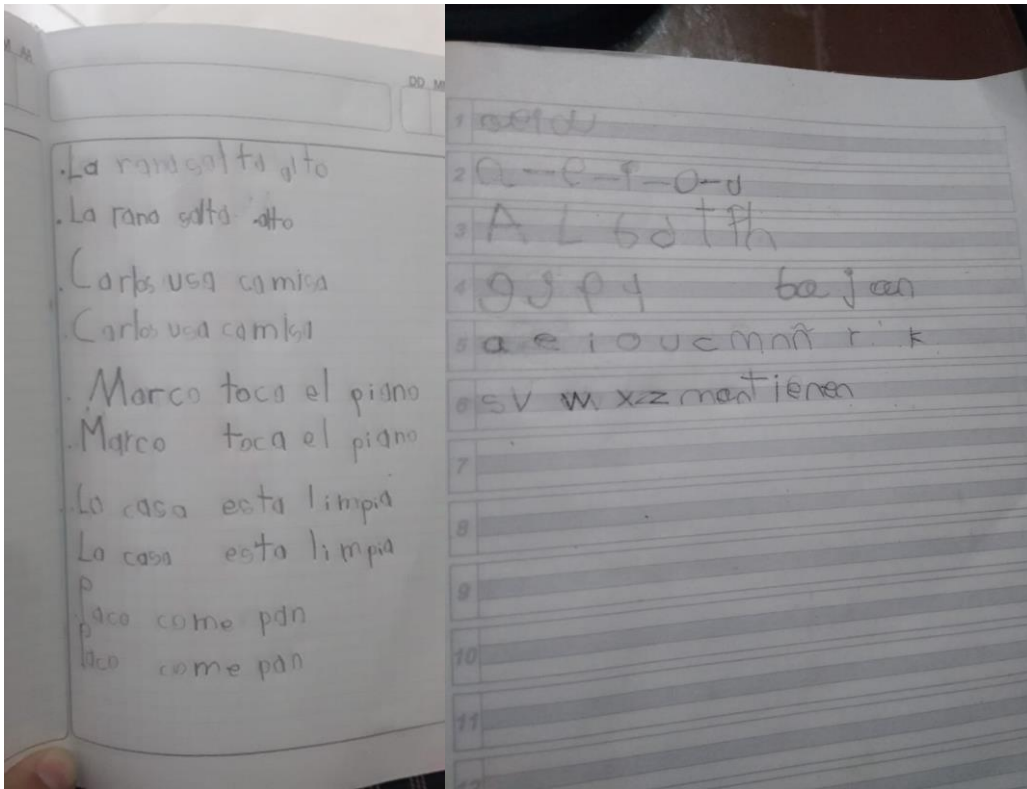 AA
DD MM
.La rana salta alto
.La rana salta alto
.Carlos usa camisa
.Carlos usa camisa
.Marco toca el piano
.Marco toca el piano
.La casa esta limpia
La casa esta limpia
P
.Paco come pan
Paco come pan
1
2 a-e-i-o-u
3 A L b d t f h
4 g j p y bajan
5 a e i o u c m n ñ r k
6 s v w x z mantienen
7
8
9
10
11
12